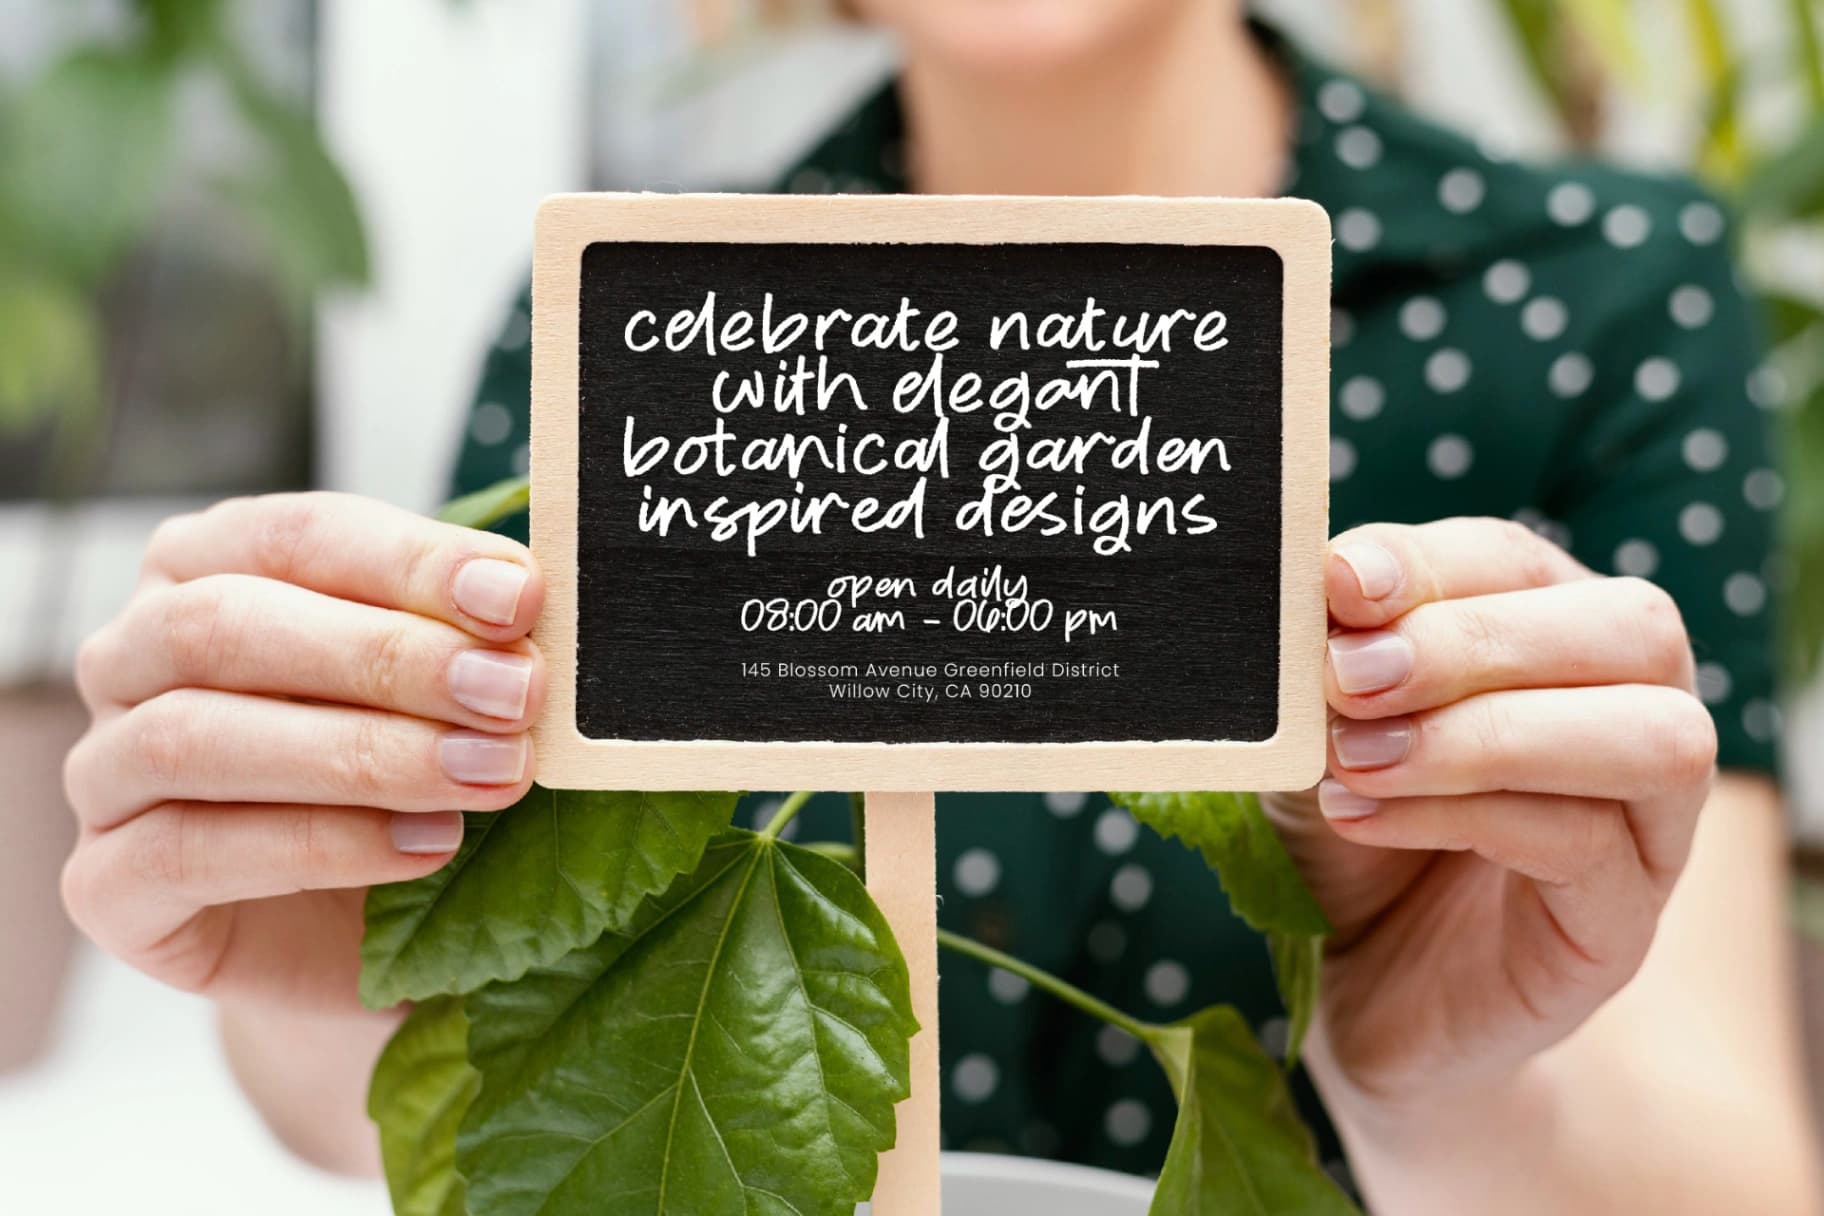 celebrate nature
with elegant
botanical garden
inspired designs
open daily
08:00 am - 06:00 pm
145 Blossom Avenue Greenfield District
Willow City, CA 90210